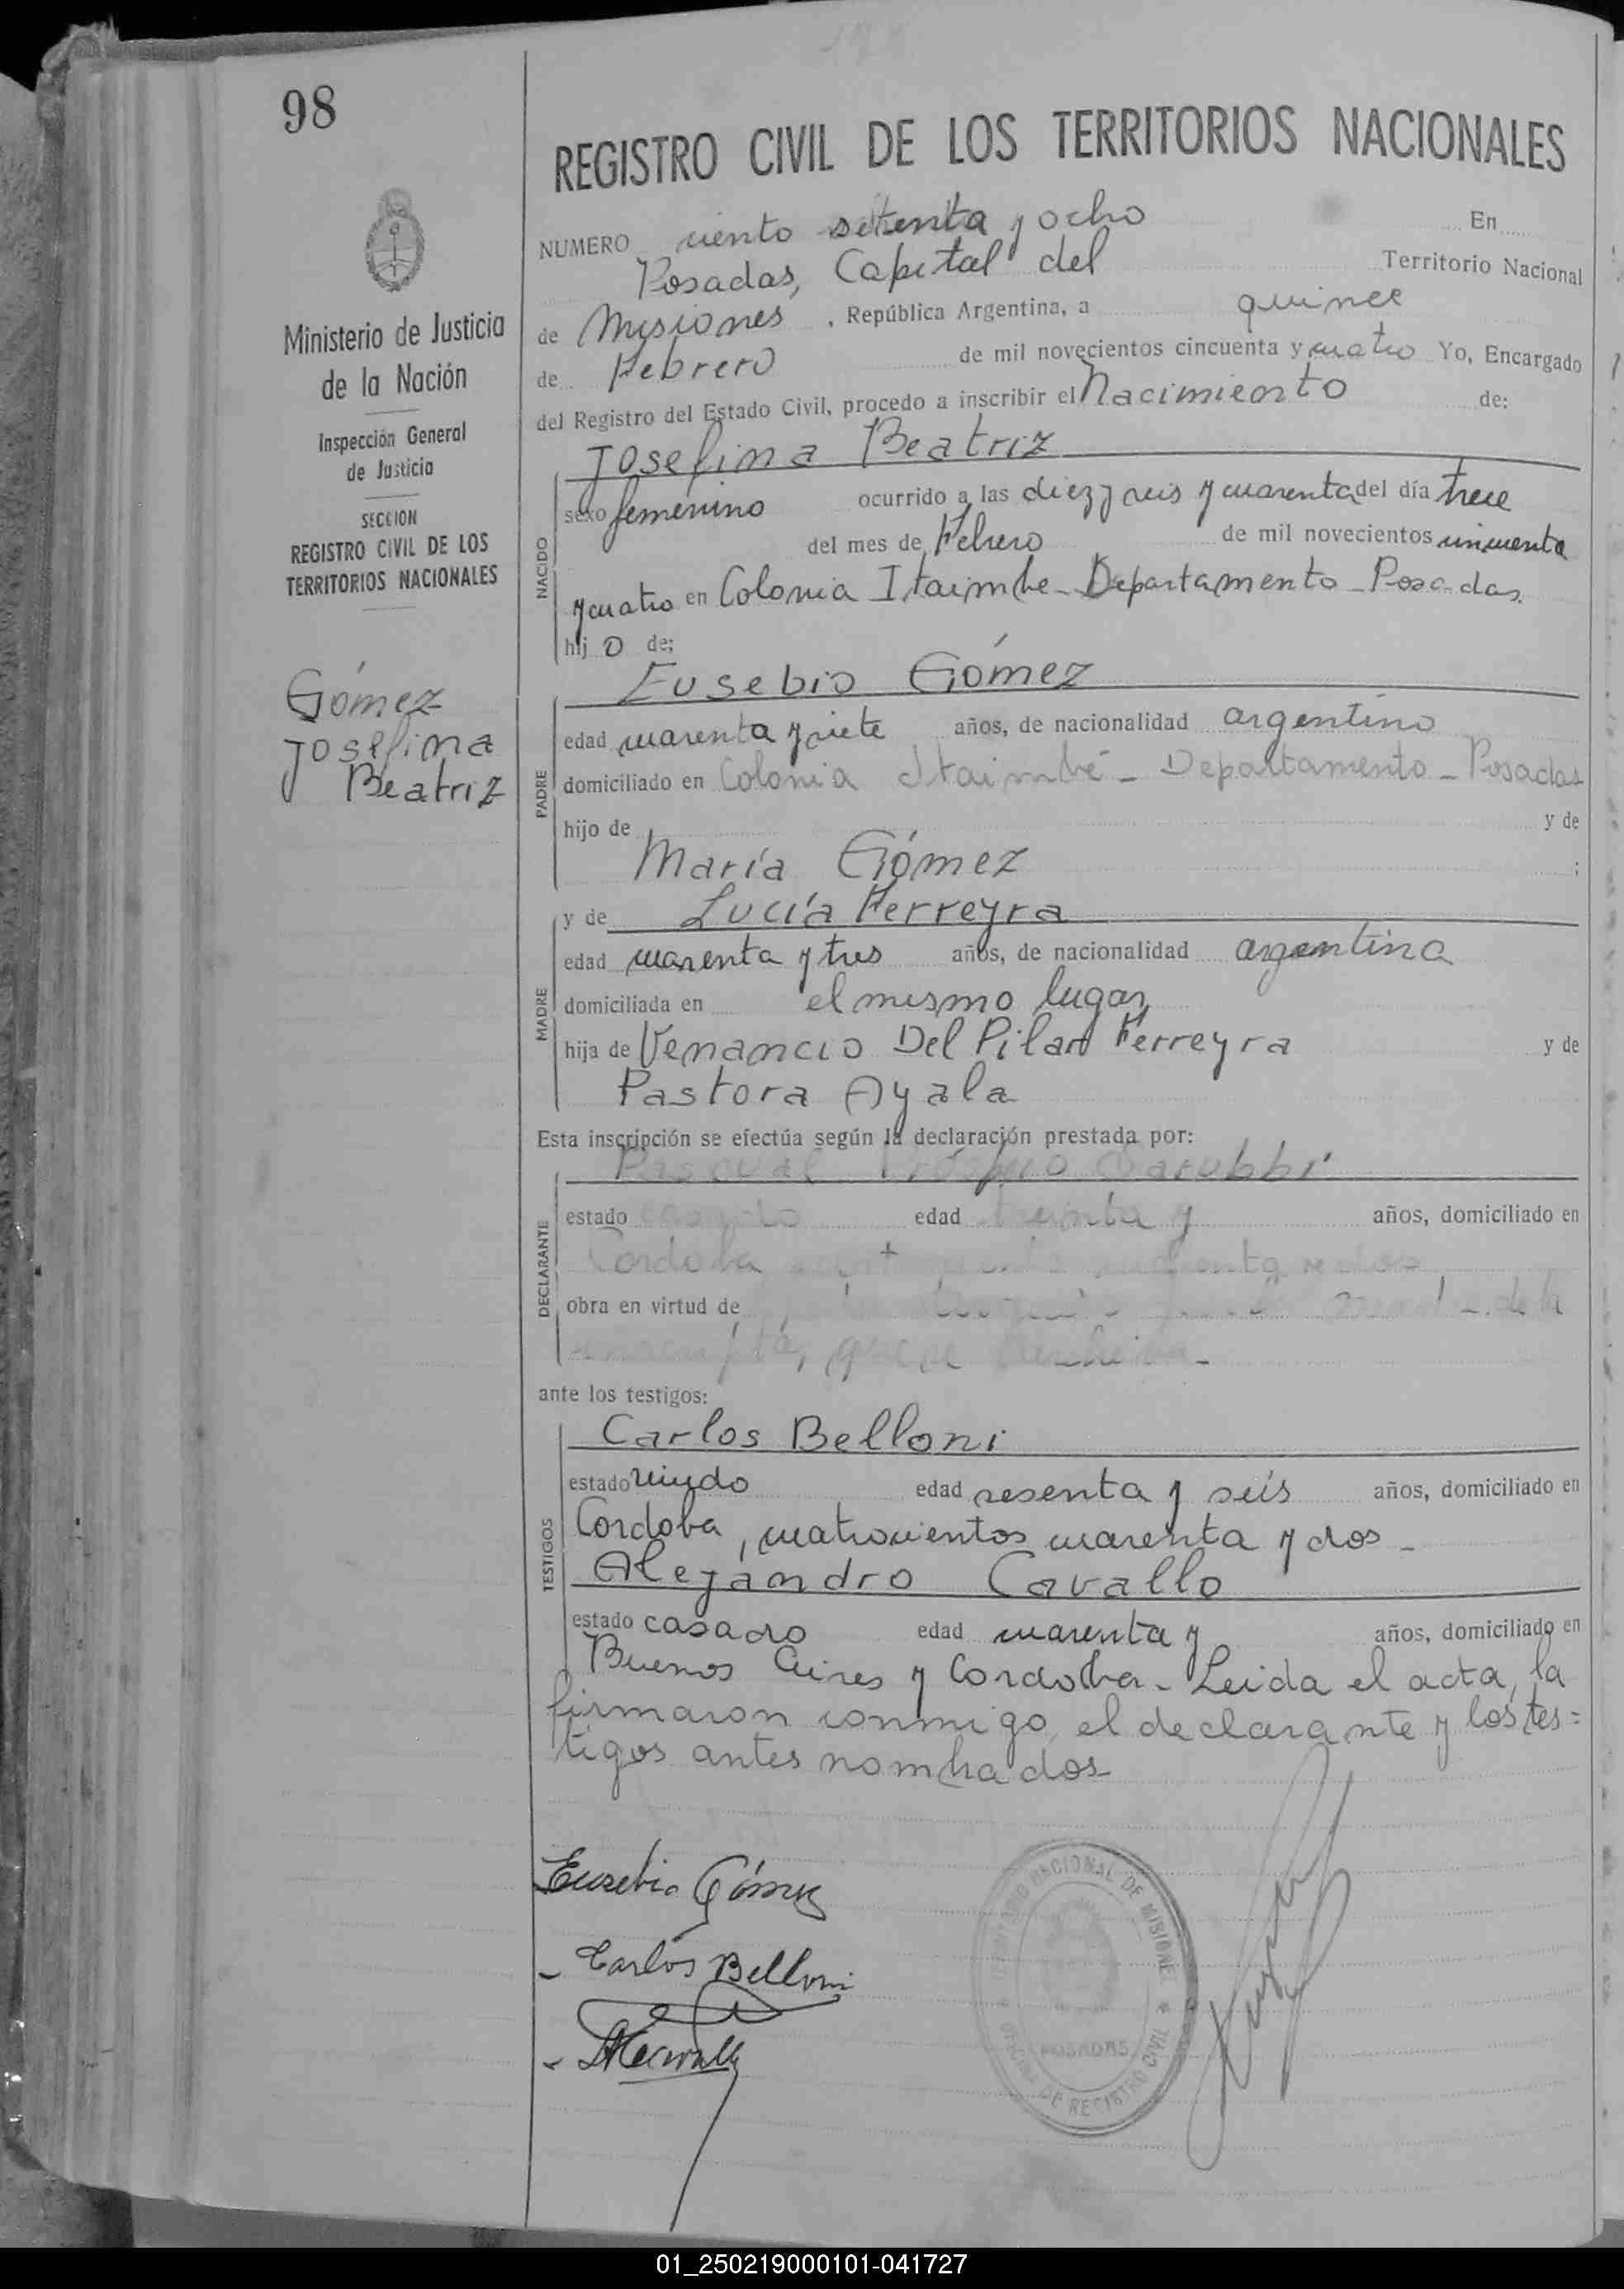 98
REGISTRO CIVIL DE LOS TERRITORIOS NACIONALES
Ministerio de Justicia
de la Nación
Inspección General
de Justicia
SECCION
REGISTRO CIVIL DE LOS
TERRITORIOS NACIONALES
Gómez
Josefina
Beatriz
NUMERO ciento setenta y ocho En
Posadas, Capital del Territorio Nacional
de Misiones, República Argentina, a quince
de Febrero de mil novecientos cincuenta y cuatro Yo, Encargado
del Registro del Estado Civil, procedo a inscribir el Nacimiento de:
Josefina Beatriz
NACIDO
sexo femenino ocurrido a las diez y seis y cuarenta del día trece
del mes de Febrero de mil novecientos cincuenta
y cuatro en Colonia Itaimbe - Departamento - Posadas.
hijo de:
Eusebio Gómez
PADRE
edad cuarenta y siete años, de nacionalidad argentino
domiciliado en Colonia Itaimbé - Departamento - Posadas
hijo de y de
María Gómez ;
MADRE
y de Lucía Ferreyra
edad cuarenta y tres años, de nacionalidad argentina
domiciliada en el mismo lugar,
hija de Venancio Del Pilar Ferreyra y de
Pastora Ayala
Esta inscripción se efectúa según la declaración prestada por:
DECLARANTE
Pascual Próspero Sarubbi
estado casado edad treinta y años, domiciliado en
Cordoba cuarenta y dos
obra en virtud de de la
inscripta, que se
ante los testigos:
TESTIGOS
Carlos Belloni
estado viudo edad sesenta y seis años, domiciliado en
Cordoba, cuatrocientos cuarenta y dos -
Alejandro Cavallo
estado casado edad cuarenta y años, domiciliado en
Buenos Aires y Cordoba - Leida el acta, la
firmaron conmigo, el declarante y los tes=
tigos antes nombrados-
Eusebio Gómez
- Carlos Belloni
NACIONAL DE MISIONES
POSADAS
OFICINA DE REGISTRO CIVIL
01_250219000101-041727